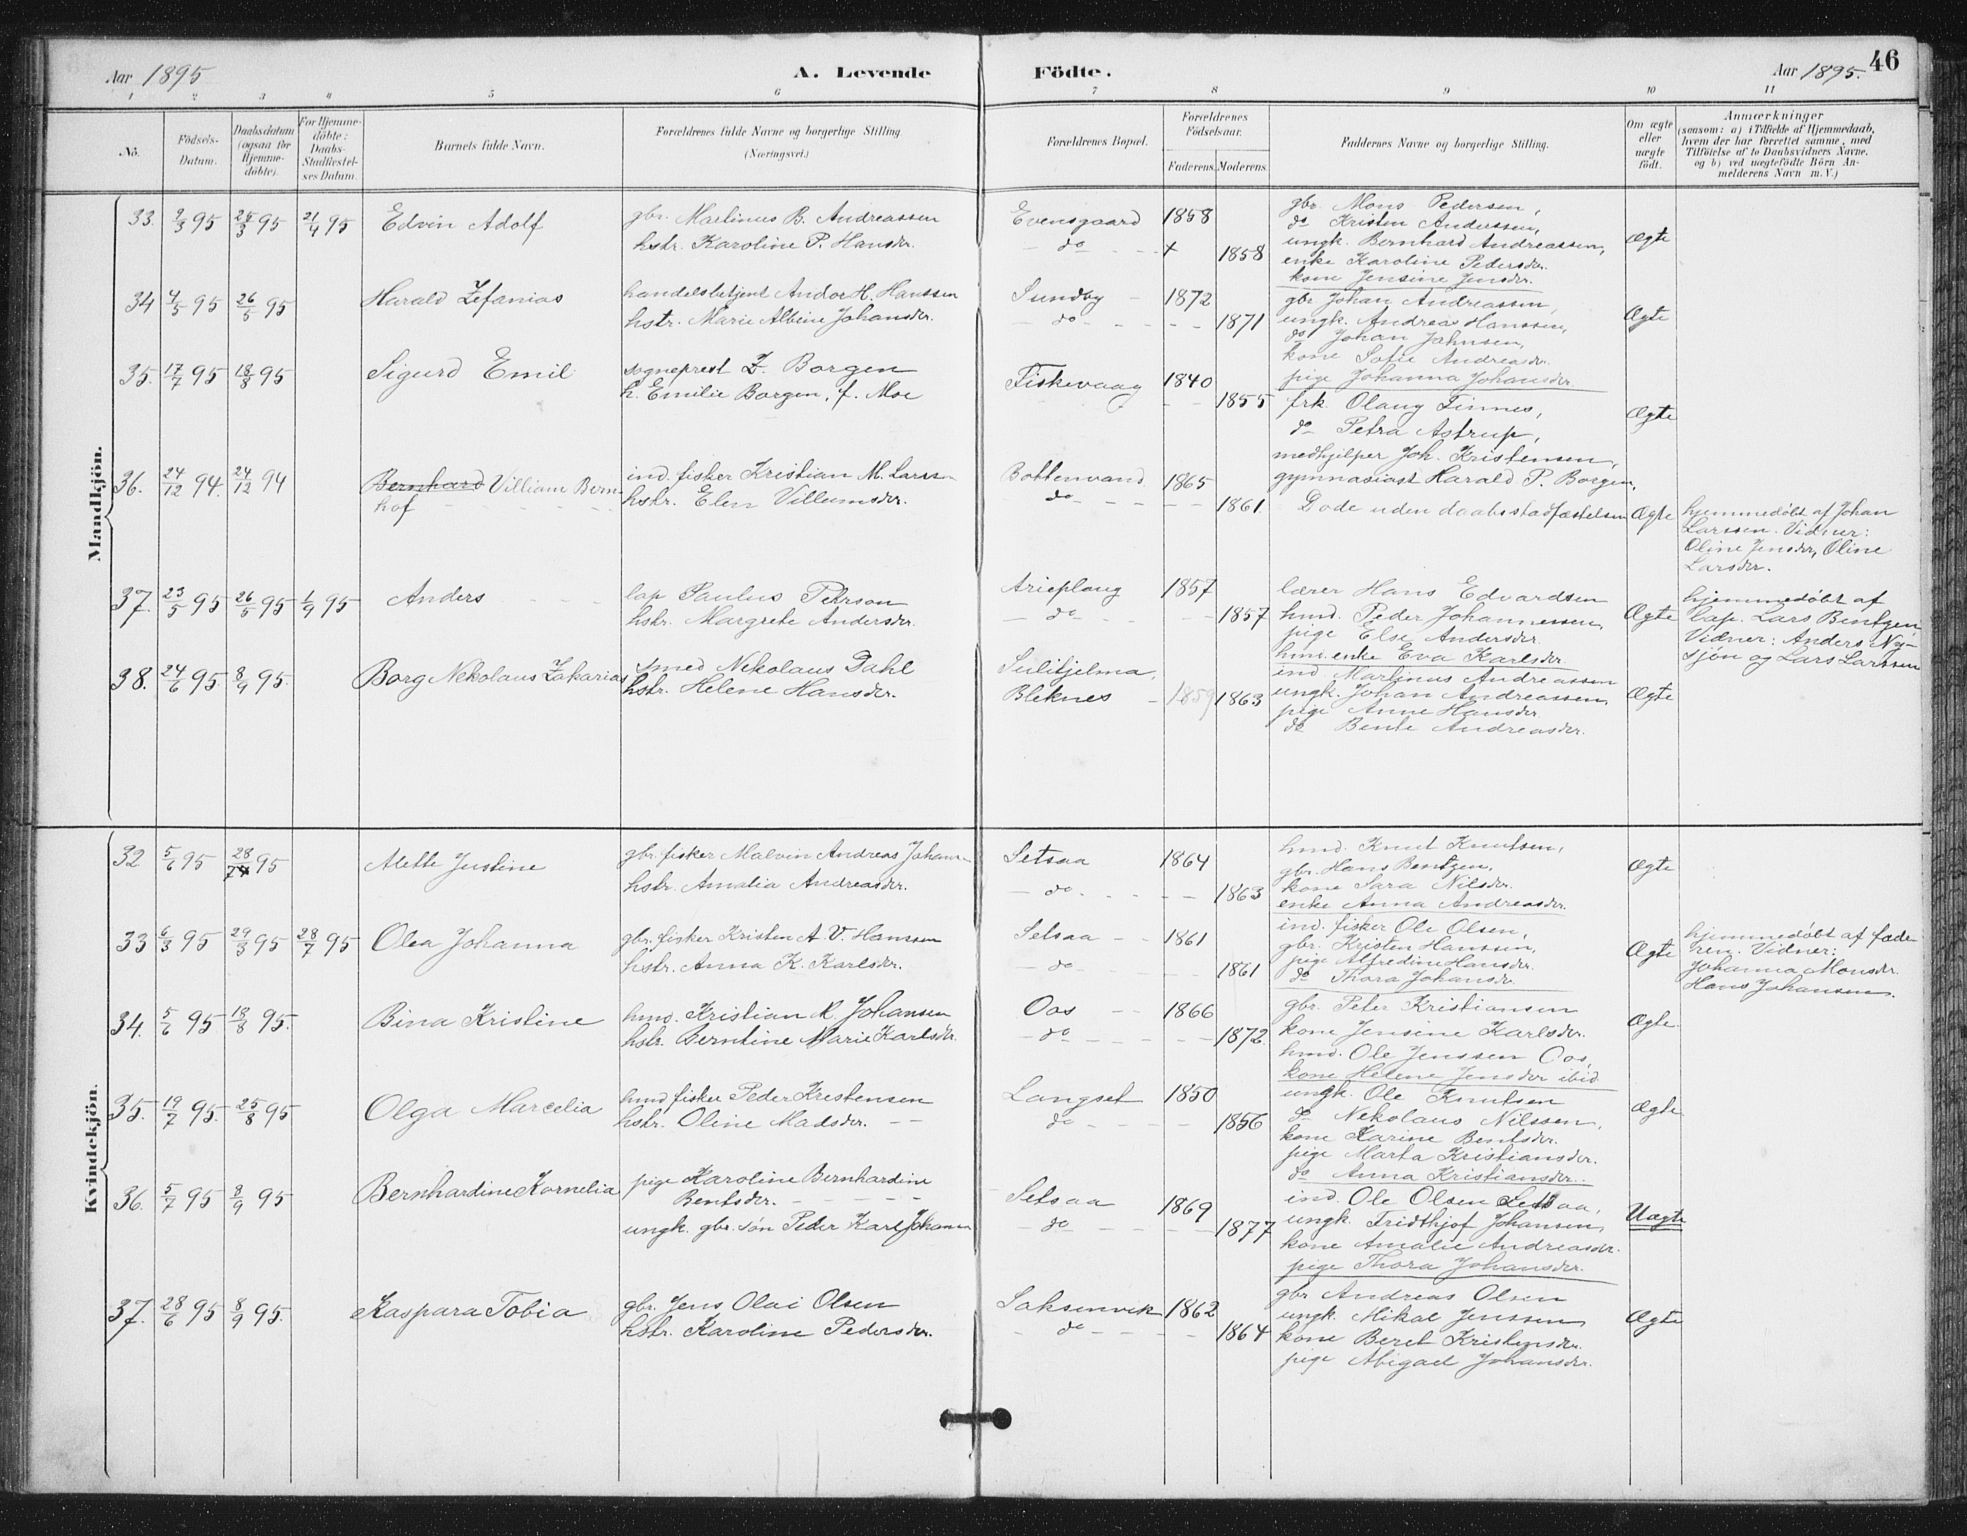 Aar 1895
A. Levende Födte.
Aar 1895.
46
1 2 3 4 5 6 7 8 9 10 11
No.
Födsels-Datum.
Daabsdatum (ogsaa for Hjemme-döbte).
For Hjemme-döbte: Daabs-Stadfæstel-ses Datum.
Barnets fulde Navn.
Forældrenes fulde Navne og borgerlige Stilling. (Næringsvei.)
Forældrenes Bopæl.
Forældrenes Födselsaar.
Faderens. Moderens.
Faddernes Navne og borgerlige Stilling.
Om ægte eller uægte födt.
Anmærkninger
(saasom: a) i Tilfælde af Hjemmedaab,
hvem der har forrettet samme, med
Tilföielse af to Daabsvidners Navne.
og b) ved uægtefödte Börn An-
melderens Navn m. V.)
Mandkjön.
33. 9/3 95 25/3 95 21/4 95 Edvin Adolf
gbr. Martinus B. Andreassen
hstr. Karoline P. Hansdr.
Evensgaard 1858
do + 1858
gbr. Mons Pedersen,
do Kristen Anderssen,
ungk. Bernhard Andreassen,
enke Karoline Pedersdr.
kone Jensine Jensdr.
Ægte
34 4/5 95 26/5 95 Harald Zefanias
handelsbetjent Andor H. Hanssen
hstr. Marie Albine Johansdr.
Sundby 1872
do 1871
gbr. Johan Andreassen,
ungk. Andreas Hanssen,
do Johan Jahnsen,
kone Sofie Andreasdr.
pige Johanna Johansdr.
Ægte
35. 17/7 95 18/8 95 Sigurd Emil
sogneprest Z. Borgen
h. Emilie Borgen, f. Moe
Fiskevaag 1840
1855
frk. Olaug Finnes,
do Petra Astrup,
medhjelper Joh. Kristensen,
gymnasiast Harald P. Borgen.
Ægte
36. 24/12 94. 24/12 94 Bernhard Villiam Bern-
hof
ind. fisker Kristian M. Larss-
hstr. Elen Villumsdr.
Bottenvand 1865
do 1861
Döde uden daabsstadfæstelsen
Ægte
hjemmedöbt af Johan
Larssen. Vidner:
Oline Jensdr, Oline
Larsdr.
37. 23/5 95 26/5 95 1/9 95 Anders
lap Paulus Pehrson
hstr. Margrete Andersdr.
Arieplaug 1857
do 1857
lærer Hans Edvardsen
hmd. Peder Johannessen,
pige Else Andersdr.
hmd.enke Eva Karlsdr.
Ægte
hjemmedöbt af
lap. Lars Bentzen,
Vidner: Anders Ny-
sjön og Lars Larssen
38. 24/6 95. 8/9 95. Borg Nekolaus Zakarias
smed Nekolaus Dahl
hstr. Helene Hansdr.
Sulitjelma,
Bleknes 1859 1863
ind Martinus Andreassen
ungk. Johan Andreassen,
pige Anne Hansdr.
do Bente Andreasdr.
Ægte
Kvindekjön.
32 5/6 95 28/7 95 Mette Justine
gbr. fisker Malvin Andreas Johans-
hstr. Amalia Andreasdr.
Setsaa 1864
do 1863
hmd. Knut Knutsen,
gbr. Hans Bentzen,
kone Sara Nilsdr.
enke Anna Andreasdr.
Ægte
33 6/3 95 29/3 95 28/7 95 Olea Johanna
gbr. fisker Kristen A. V. Hanssen
hstr. Anna K. Karlsdr.
Setsaa 1861
do 1861
ind. fisker Ole Olsen,
gbr. Kristen Hanssen,
pige Alfredine Hansdr.
do Thora Johansdr.
Ægte
hjemmedöbt af fade-
ren. Vidner:
Johanna Monsdr.
Hans Johansen.
34. 5/6 95 18/8 95. Bina Kristine
hmd. Kristian R. Johansen
hstr. Berntine Marie Karlsdr.
Oos 1866
do 1872
gbr. Peter Kristiansen
kone Jensine Karlsdr.
hmd. Ole Jenssen Oos,
kone Helene Jensdr ibid.
Ægte
35. 19/7 95. 25/8 95 Olga Marcelia
hmd fisker Peder Kristensen
hstr. Oline Madsdr.
Langset 1850
do 1856
ungk. Ole Knutsen
do Nekolaus Nilssen,
kone Karine Bentsdr.
pige Marta Kristiansdr.
do Anna Kristiansdr.
Ægte
36. 5/7 95 8/9 95 Bernhardine Kornelia
pige Karoline Bernhardine
Bentsdr.
ungk. gbr. søn Peder Karl Johansen
Setsaa 1869
do 1877
ind. Ole Olsen Setsaa,
ungk. Fridthjof Johansen,
kone Amalie Andreasdr.
pige Thora Johansdr.
Uægte
37. 28/6 95 8/9 95. Kaspara Tobia
gbr. Jens Olai Olsen
hstr. Karoline Pedersdr.
Saksenvik 1862
do 1864
gbr Andreas Olsen
ungk. Mikal Jenssen
kone Beret Kristensdr.
pige Abigael Johansdr.
Ægte